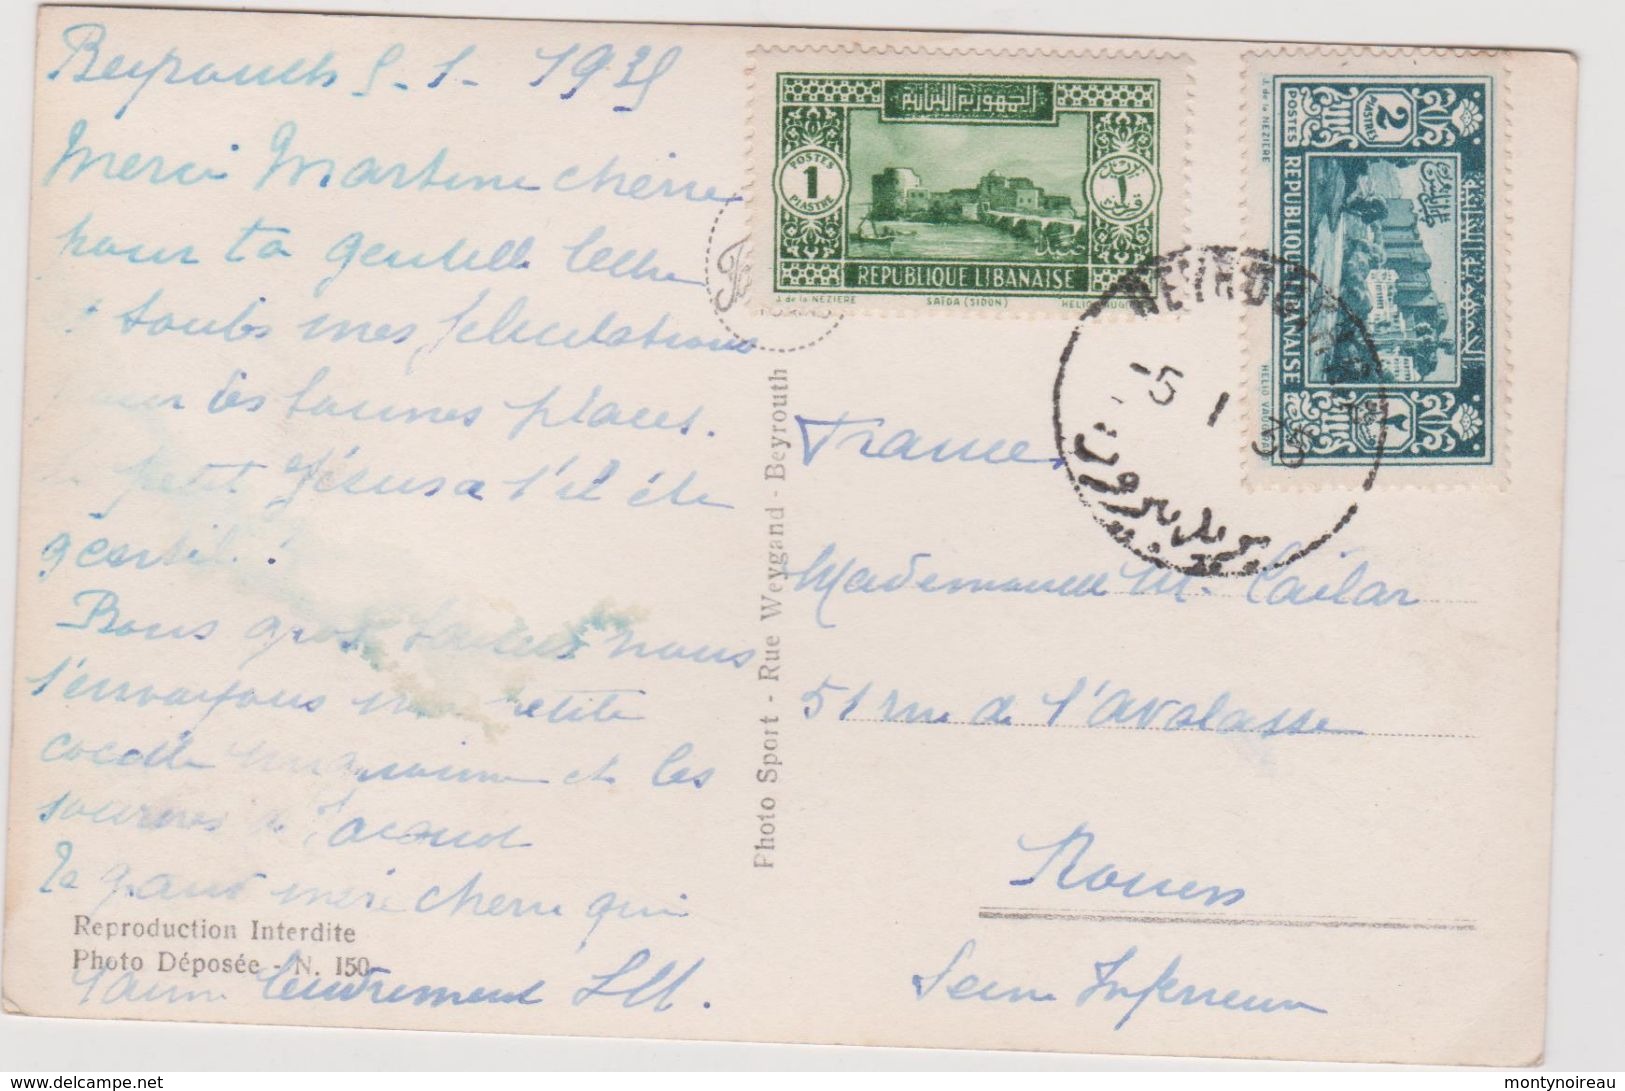 Beyrouth 5-1-1935
Merci Martine chérie
pour ta gentille lettre
toutes mes félicitations
pour les bonnes places.
petit Jésus a t'il été
gentil !
Bons gros nous
t'envoyons ma petite
cocotte et les
sourires de
Ta grand mère chérie qui
t'aime tendrement
Reproduction Interdite
Photo Déposée - N. 150
Photo Sport - Rue Weygand - Beyrouth
الجمهورية اللبنانية
POSTES
1
PIASTRE
١
REPUBLIQUE LIBANAISE
J. de la NEZIERE SAÏDA (SIDON) HELIO VAUGIRARD
2
PIASTRES
POSTES REPUBLIQUE LIBANAISE
J. de la NEZIERE
HELIO VAUGIRARD
٢
BEYROUTH
5 1 35
بيروت
France
Mademoiselle M. Cailar
51 rue de l'avalasse
Rouen
Seine Inférieure
www.delcampe.net
montynoireau